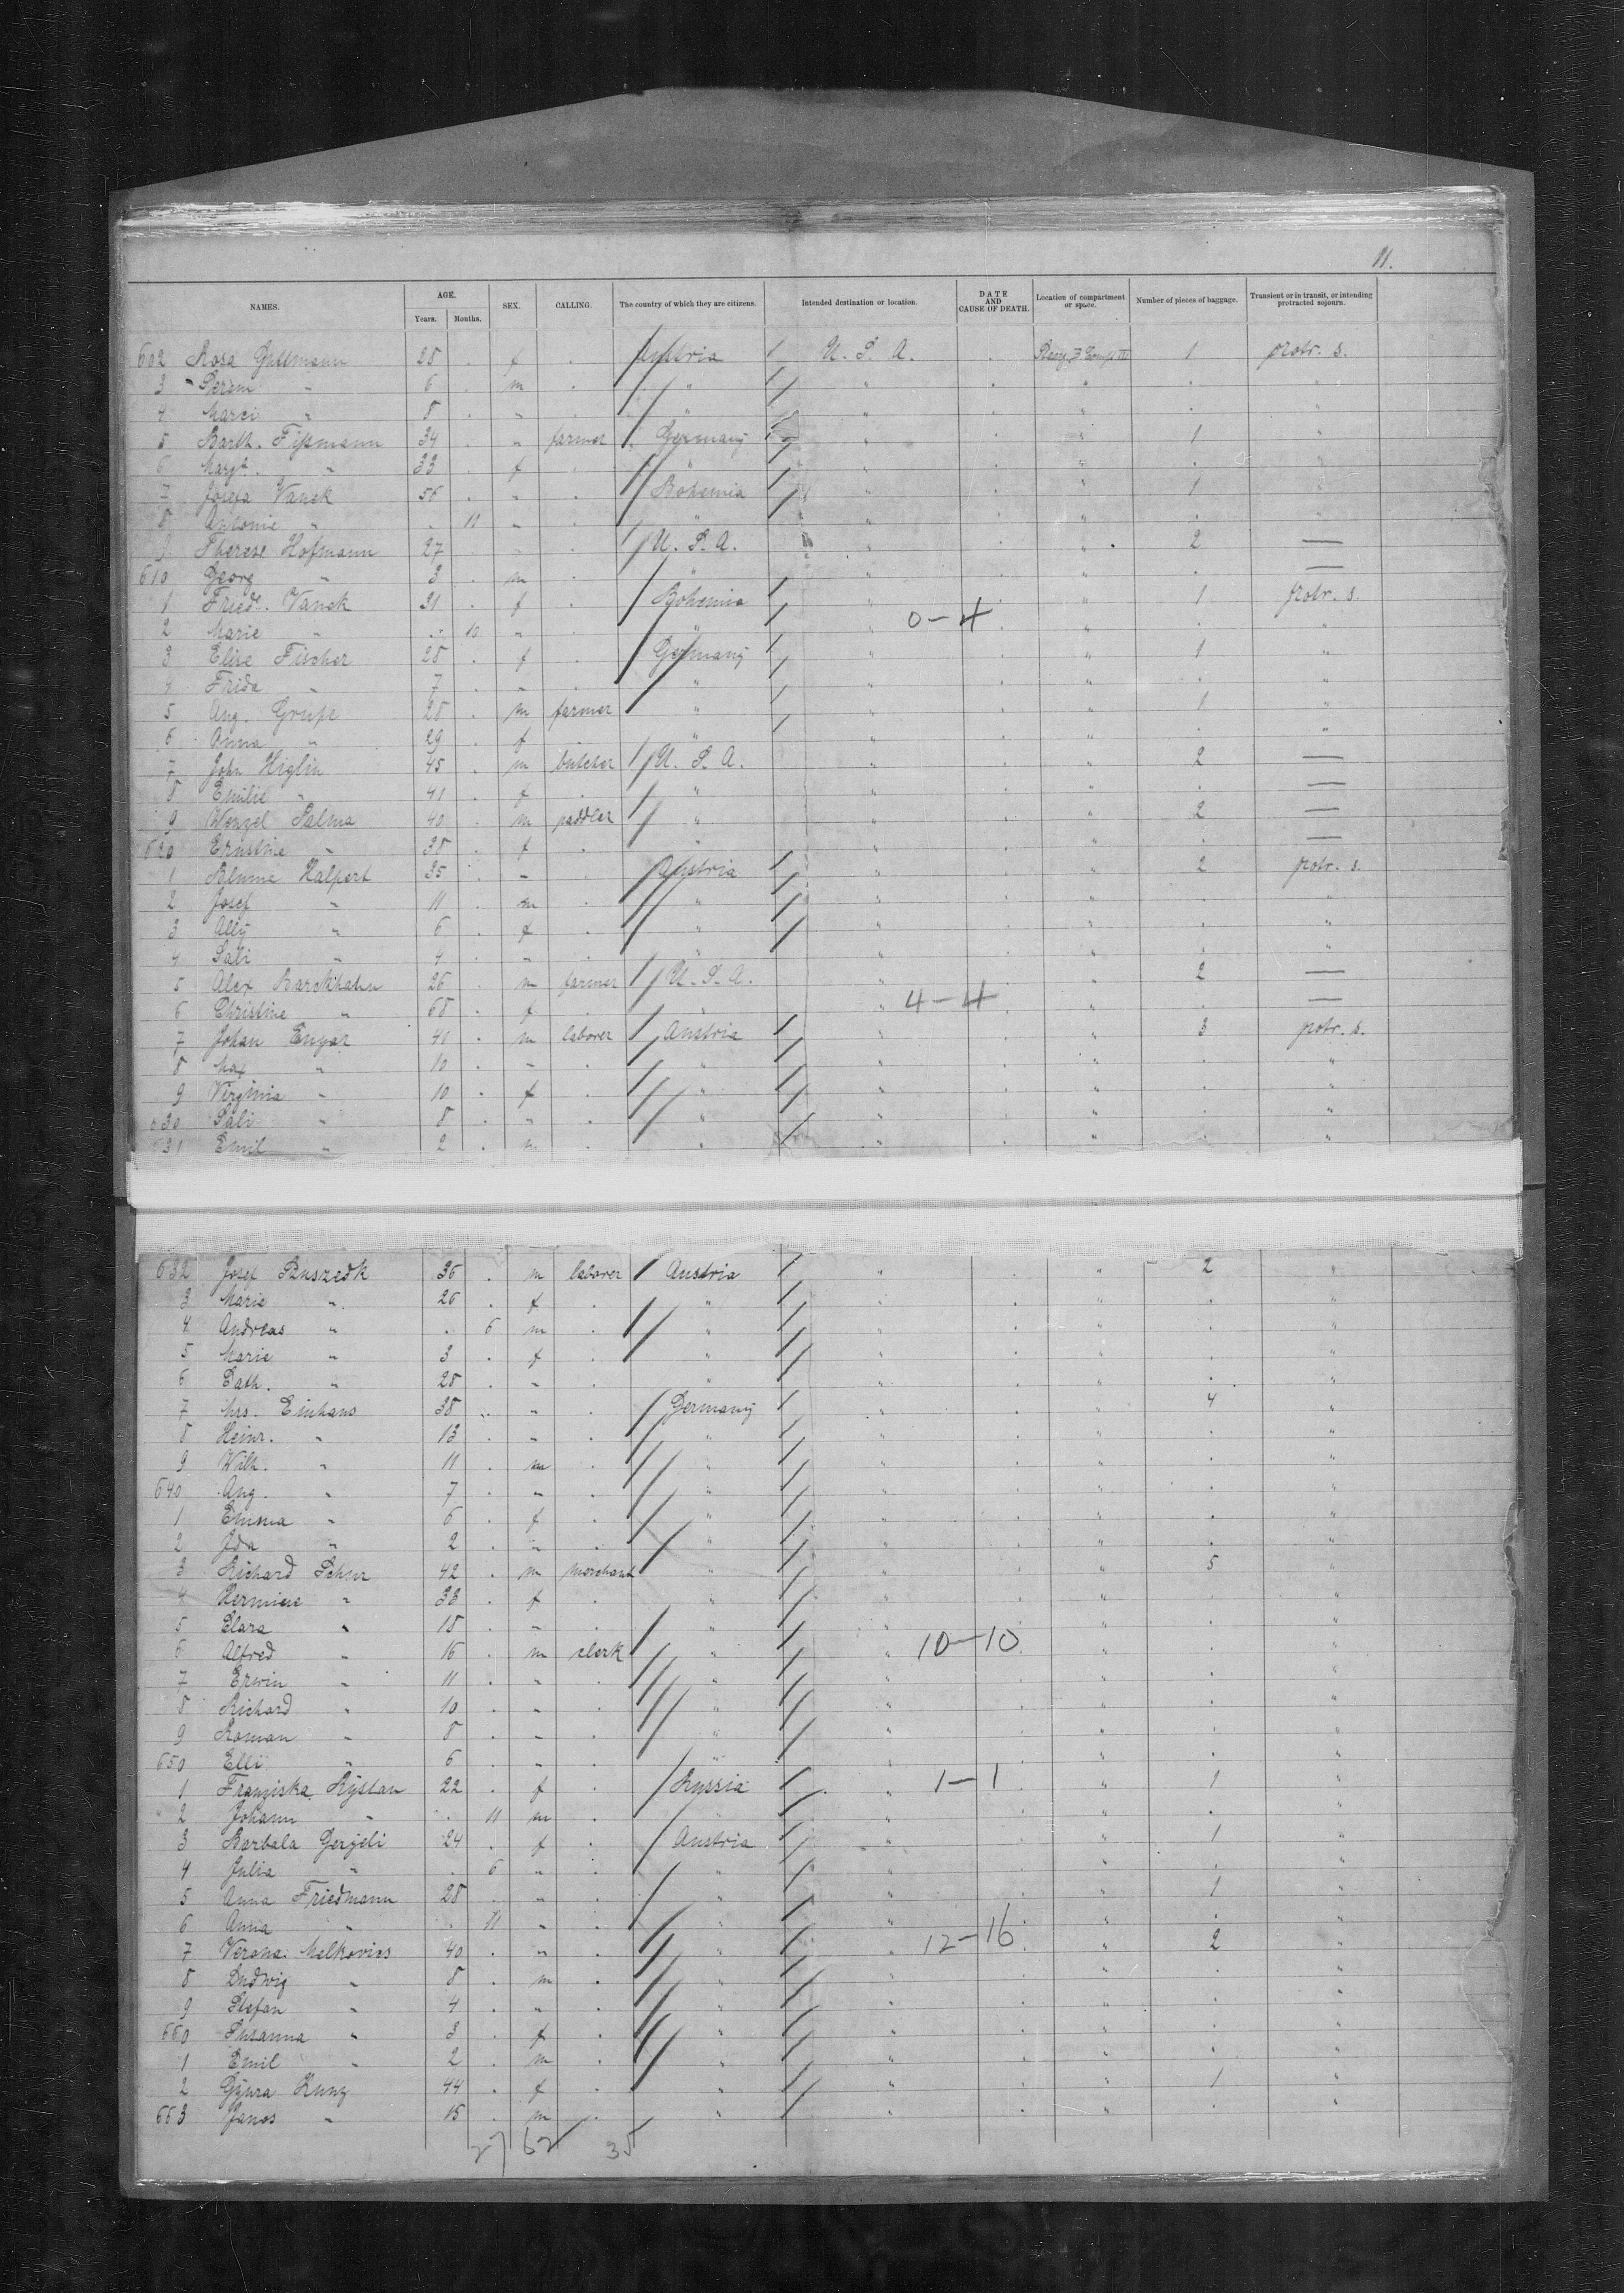 11.
NAMES. AGE. Years. Months. SEX. CALLING. The country of which they are citizens. Intended destination or location. DATE AND CAUSE OF DEATH. Location of compartment or space. Number of pieces of baggage. Transient or in transit, or intending protracted sojourn.
602 Rosa Guttmann 28 . f . Austria U. S. A. . 1 protr. s.
3 " 6 . m . " " . " . "
4 Marci " 8 . " . " " . " . "
5 Barth. Fißmann 34 . " farmer Germany " . " 1 "
6 Margt. " 33 . f . " " . " . "
7 Josefa Vanek 56 . " . Bohemia " . " 1 "
8 Antonie " . 11 " . " " . " . "
9 Therese Hofmann 27 . " . U. S. A. " . " 2 —
610 Georg " 3 . m . " " . " . —
1 Friedr. Vanek 31 . f . Bohemia " . " 1 protr. s.
2 Marie " . 10 " . " " 0-4 . " . "
3 Elise Fischer 28 . f . Germany " . " 1 "
4 Frida " 7 . " . " " . " . "
5 Aug. Grupe 28 . m farmer " " . " 1 "
6 Anna " 29 . f . " " . " . "
7 John Higlin 45 . m butcher U. S. A. " . " 2 —
8 Emilie " 41 . f . " " . " . —
9 Wenzel Palma 40 . m peddler " " . " 2 —
620 Ernstine " 38 . f . " " . " . —
1 Blume Halpert 35 . " . Austria " . " 2 protr. s.
2 Josef " 11 . m . " " . " . "
3 Ally " 6 . f . " " . " . "
4 Sali " 4 . " . " " . " . "
5 Alex Barckhahn 26 . m farmer U. S. A. " . " 2 —
6 Christine " 68 . f . " " 4-4 . " . —
7 Johan Enyar 41 . m laborer Austria " . " 3 protr. s.
8 Max " 10 . " . " " . " . "
9 Virginia " 10 . f . " " . " . "
630 Sali " 8 . " . " " . " . "
631 Emil " 2 . m . " " . " . "
632 Josef 36 . m laborer Austria " . " 2 "
3 Marie " 26 . f . " " . " . "
4 Andreas " . 6 m . " " . " . "
5 Marie " 3 . f . " " . " . "
6 Cath. " 28 . " . " " . " . "
7 Mrs. Einhaus 38 . " . Germany " . " 4 "
8 Heinr. " 13 . " . " " . " . "
9 Wilh. " 11 . m . " " . " . "
640 Aug. " 7 . " . " " . " . "
1 Emma " 6 . f . " " . " . "
2 Ida " 2 . " . " " . " . "
3 Richard 42 . m merchant " " . " 5 "
4 Hermine " 38 . f . " " . " . "
5 Clara " 18 . " . " " . " . "
6 Alfred " 16 . m clerk " " 10-10 . " . "
7 Erwin " 11 . " . " " . " . "
8 Richard " 10 . " . " " . " . "
9 Roman " 8 . " . " " . " . "
650 Elli " 6 . " . " " . " . "
1 Franziska Rystan 22 . f . Russia " 1-1 . " 1 "
2 Johann " . 11 m . " " . " . "
3 Barbala Gergeli 24 . f . Austria " . " 1 "
4 Julia " . 6 " . " " . " . "
5 Anna Friedmann 28 . " . " " . " 1 "
6 Anna " . 11 " . " " . " . "
7 Verona Melkovics 40 . " . " " 12-16 . " 2 "
8 Ludwig " 8 . m . " " . " . "
9 Stefan " 4 . " . " " . " . "
660 Susanna " 3 . f . " " . " . "
1 Emil " 2 . m . " " . " . "
2 Gyura Kunz 44 . f . " " . " 1 "
663 Janos " 15 . m . " " . " . "
27 62 35